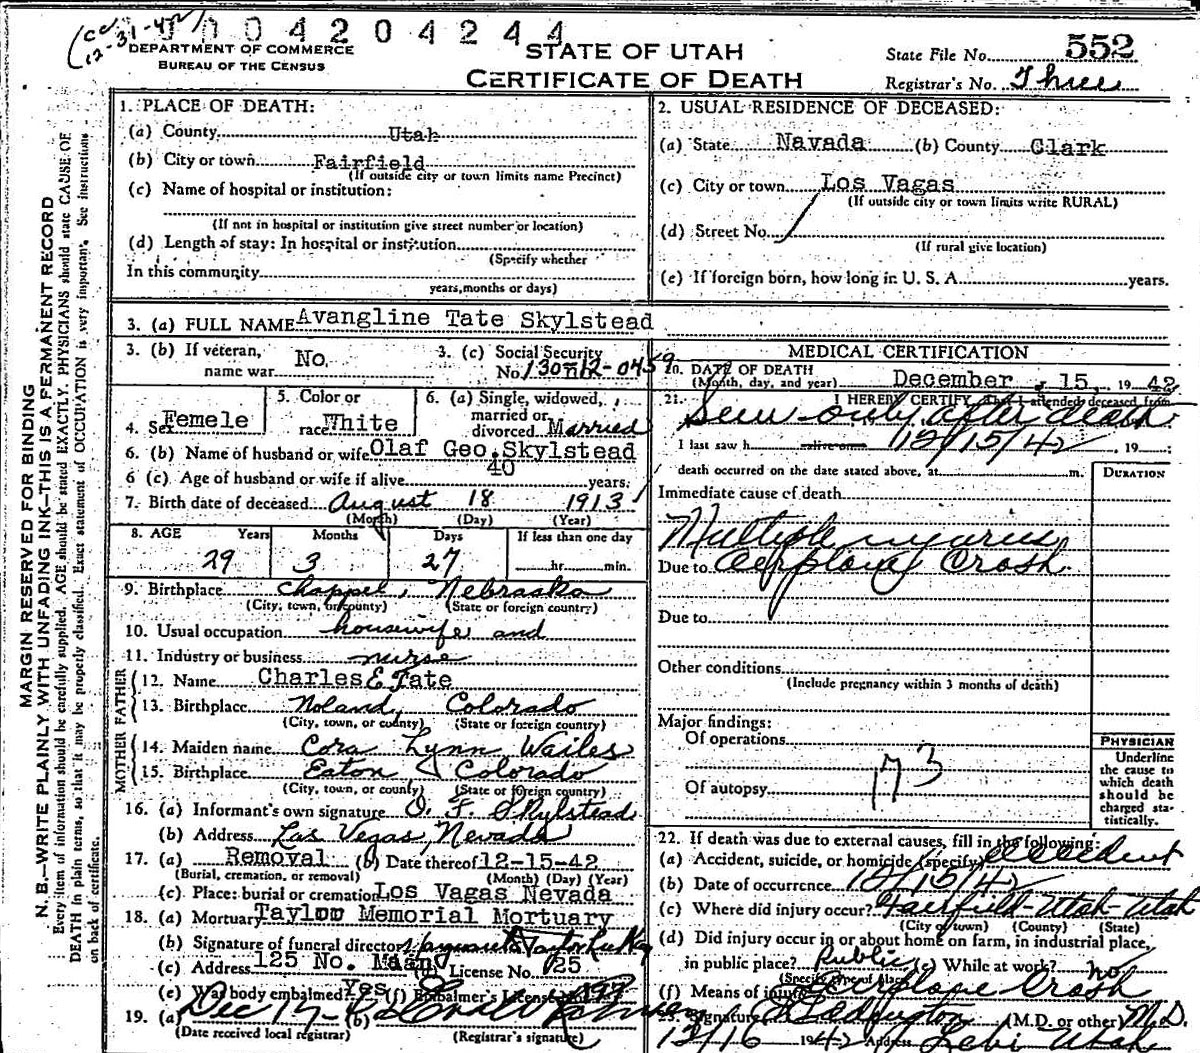 (cc 12-31-42)
0004204244
DEPARTMENT OF COMMERCE
BUREAU OF THE CENSUS
STATE OF UTAH
CERTIFICATE OF DEATH
State File No. 552
Registrar's No. Three
MARGIN RESERVED FOR BINDING
N. B.—WRITE PLAINLY WITH UNFADING INK—THIS IS A PERMANENT RECORD
Every item of information should be carefully supplied. AGE should be stated EXACTLY. PHYSICIANS should state CAUSE OF
DEATH in plain terms, so that it may be properly classified. Exact statement of OCCUPATION is very important. See instructions
on back of certificate.
1. PLACE OF DEATH:
(a) County Utah
(b) City or town Fairfield
(If outside city or town limits name Precinct)
(c) Name of hospital or institution:
(If not in hospital or institution give street number or location)
(d) Length of stay: In hospital or institution
(Specify whether
In this community
years, months or days)
2. USUAL RESIDENCE OF DECEASED:
(a) State Navada (b) County Clark
(c) City or town Los Vagas
(If outside city or town limits write RURAL)
(d) Street No.
(If rural give location)
(e) If foreign born, how long in U. S. A. years.
3. (a) FULL NAME Avangline Tate Skylstead
3. (b) If veteran, name war No.
3. (c) Social Security No. 130-12-0459
4. Sex Femele
5. Color or race White
6. (a) Single, widowed, married or divorced Married
6. (b) Name of husband or wife Olaf Geo. Skylstead
6 (c) Age of husband or wife if alive 40 years.
7. Birth date of deceased August 18 1913
(Month) (Day) (Year)
8. AGE Years Months Days If less than one day
29 3 27 hr. min.
9. Birthplace Chappel, Nebraska
(City, town, or county) (State or foreign country)
10. Usual occupation housewife and
11. Industry or business nurse
FATHER
12. Name Charles E Tate
13. Birthplace Noland, Colorado
(City, town, or county) (State or foreign country)
MOTHER
14. Maiden name Cora Lynn Wailes
15. Birthplace Eaton Colorado
(City, town, or county) (State or foreign country)
16. (a) Informant's own signature O. F. Skylstead
(b) Address Las Vegas, Nevada
17. (a) Removal (b) Date thereof 12-15-42
(Burial, cremation, or removal) (Month) (Day) (Year)
(c) Place: burial or cremation Los Vagas Nevada
18. (a) Mortuary Taylor Memorial Mortuary
(b) Signature of funeral director
(c) Address 125 No. Main (d) License No. 25
(e) Was body embalmed? Yes (f) Embalmer's License No. 199
19. (a) Dec 17-42 (b)
(Date received local registrar) (Registrar's signature)
MEDICAL CERTIFICATION
20. DATE OF DEATH
(Month, day, and year) December 15, 1942
21. I HEREBY CERTIFY, That I attended deceased from
Seen only after death
I last saw h alive on 12/15/42, 19
death occurred on the date stated above, at m.
DURATION
Immediate cause of death
Multiple injuries
Due to aerplane Crash
Due to
Other conditions
(Include pregnancy within 3 months of death)
Major findings:
Of operations
Of autopsy
173
PHYSICIAN
Underline
the cause to
which death
should be
charged sta-
tistically.
22. If death was due to external causes, fill in the following:
(a) Accident, suicide, or homicide (specify) accident
(b) Date of occurrence 12/15/42
(c) Where did injury occur? Fairfield-Utah-Utah
(City or town) (County) (State)
(d) Did injury occur in or about home on farm, in industrial place,
in public place? Public (e) While at work? no
(Specify type of place)
(f) Means of injury Aerplane Crash
23. Signature Eddington (M.D. or other) M.D.
12/16 1942 Address Lehi Utah